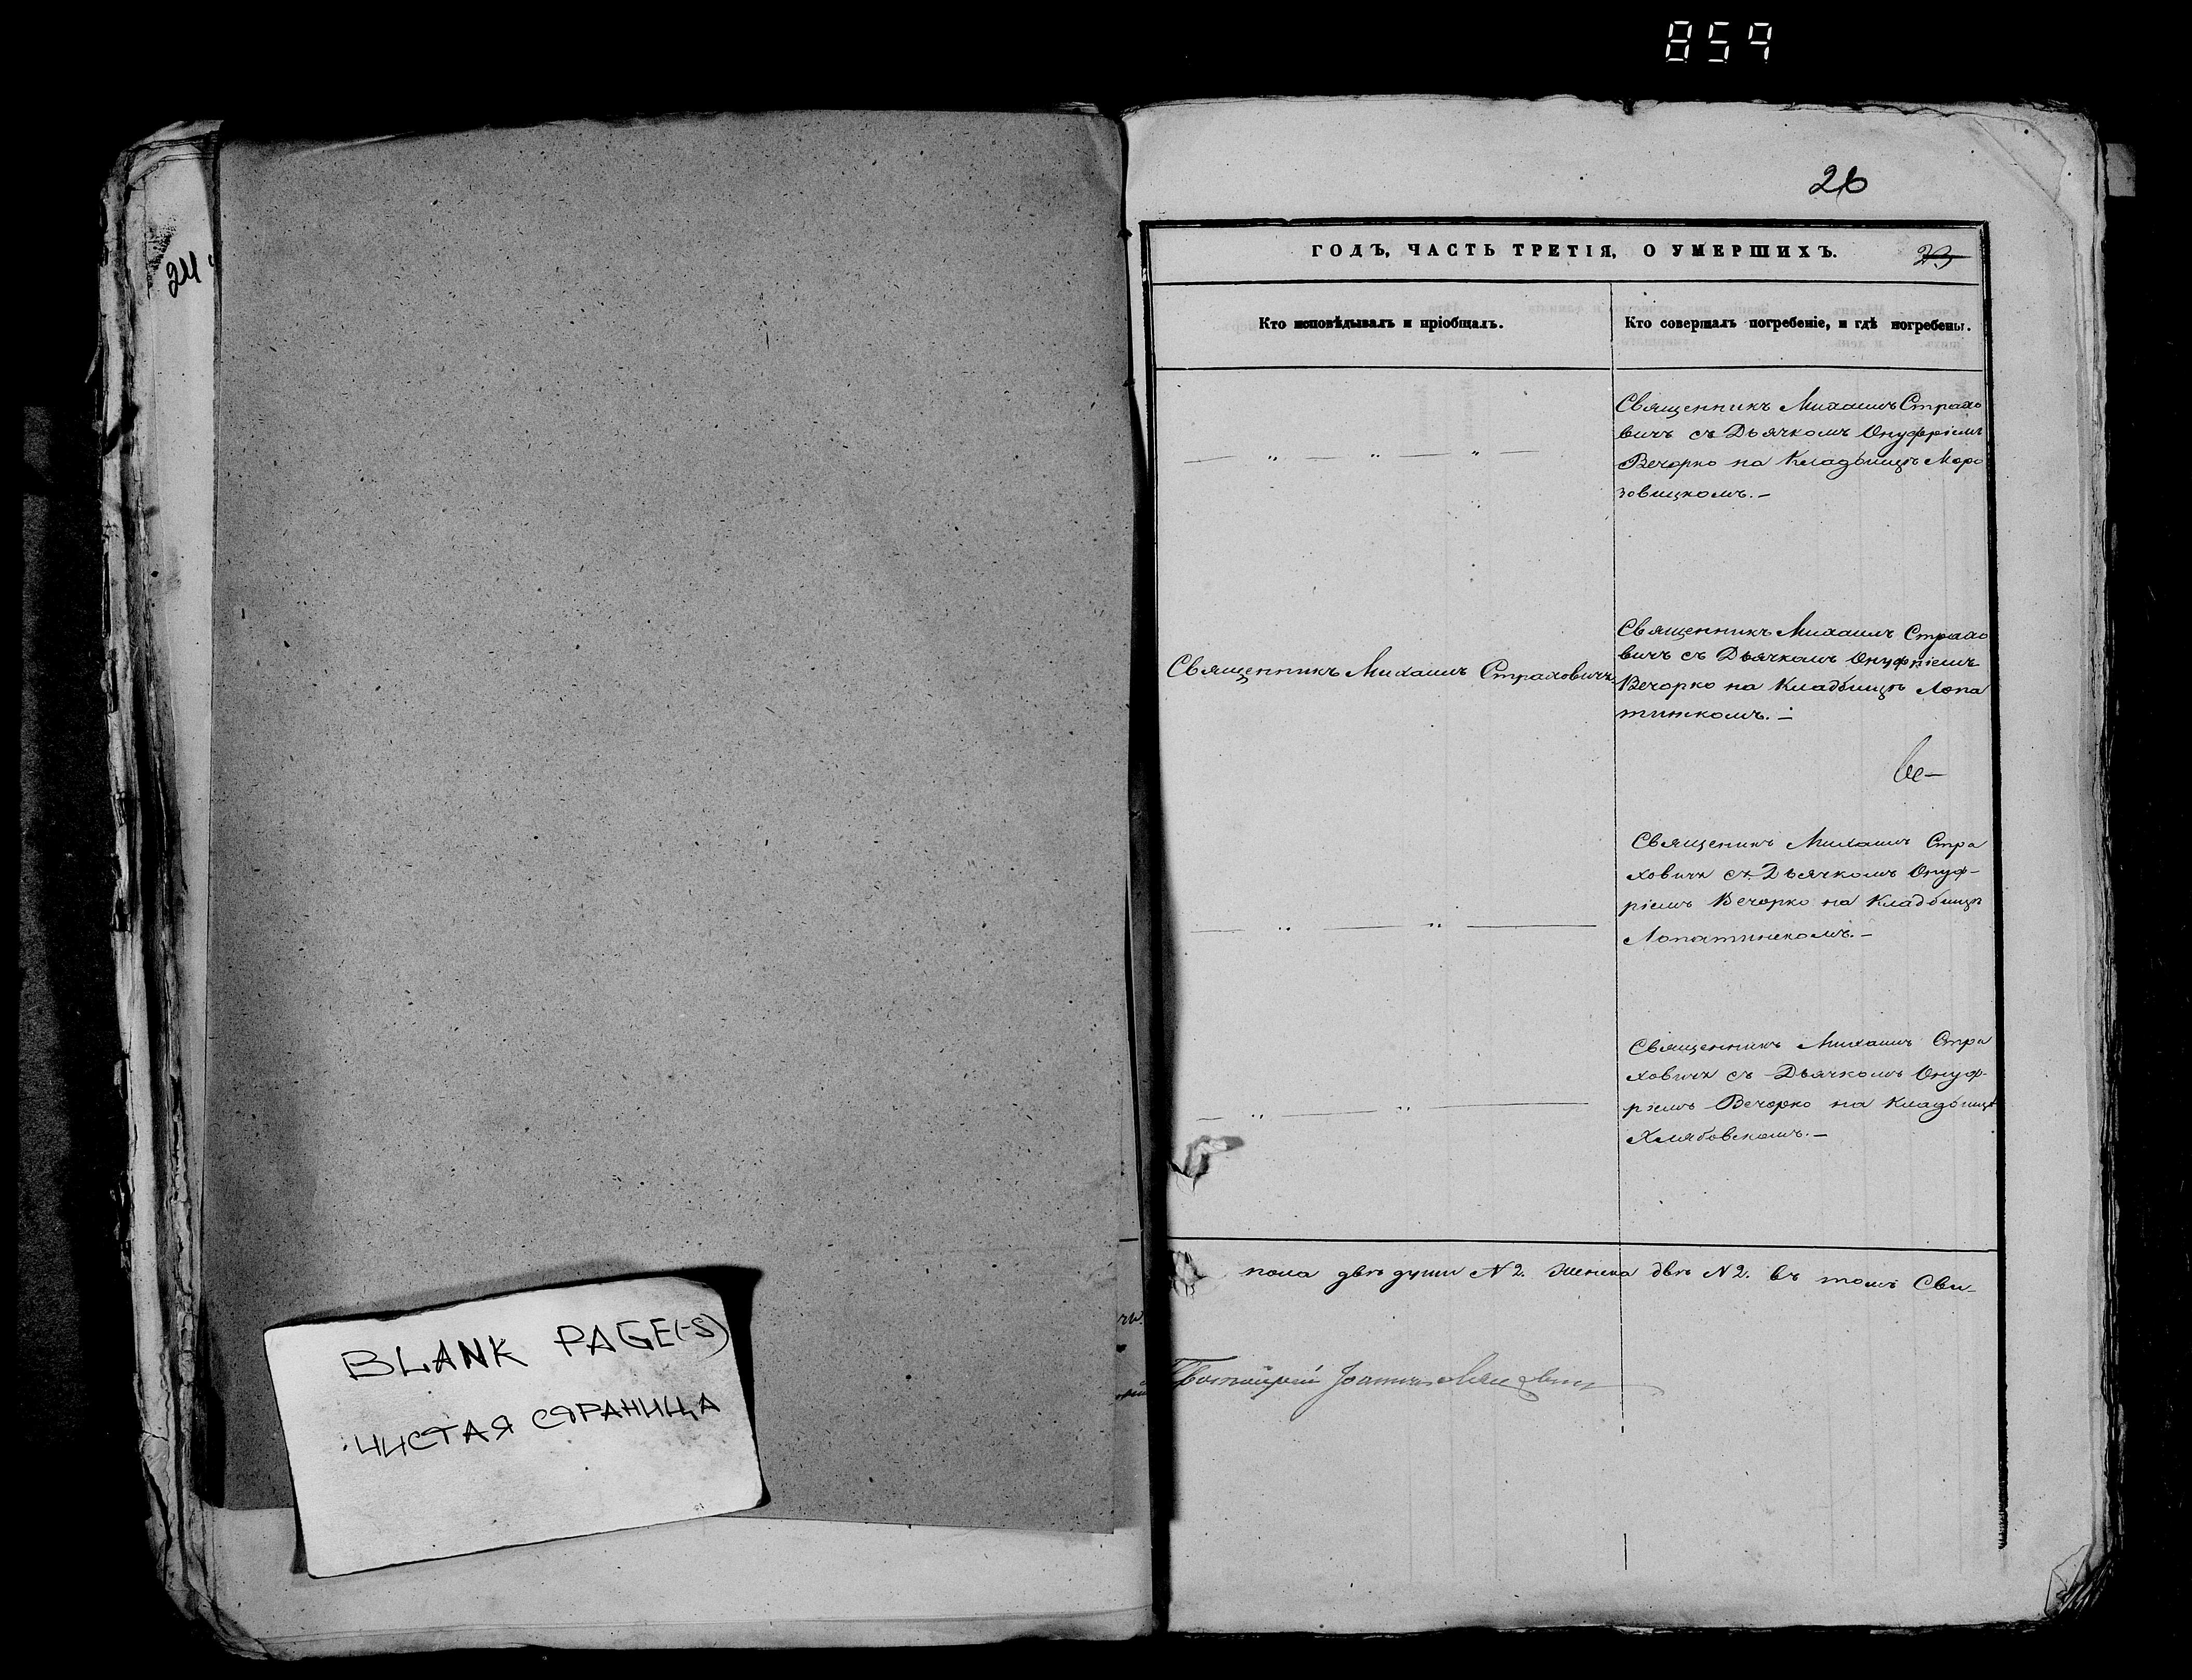 859
24
BLANK PAGE(-S)
ЧИСТАЯ СТРАНИЦА
26
ГОДЪ, ЧАСТЬ ТРЕТІЯ, О УМЕРШИХЪ. 23
Кто исповѣдывалъ и пріобщалъ.
Кто совершалъ погребеніе, и гдѣ погребены.
Священникъ Михаилъ Страхо
вичъ съ Дьячкомъ Онуфріемъ
Вечорко на Кладбищѣ Моро
зовицкомъ. —
Священникъ Михаилъ Страховичъ
Священникъ Михаилъ Страхо
вичъ съ Дьячкомъ Онуфріемъ
Вечорко на Кладбищѣ Лопа
тинкомъ. —
Священикъ Михаилъ Стра
ховичъ съ Дьячкомъ Онуф-
ріемъ Вечорко на Кладбищѣ
Лопатинскомъ. —
Священникъ Михаилъ Стра
ховичъ съ Дьячкомъ Онуф-
ріемъ Вечорко на Кладбищѣ
Хлябовскомъ. —
пола двѣ души N 2. Женска двѣ N 2. въ томъ Сви-